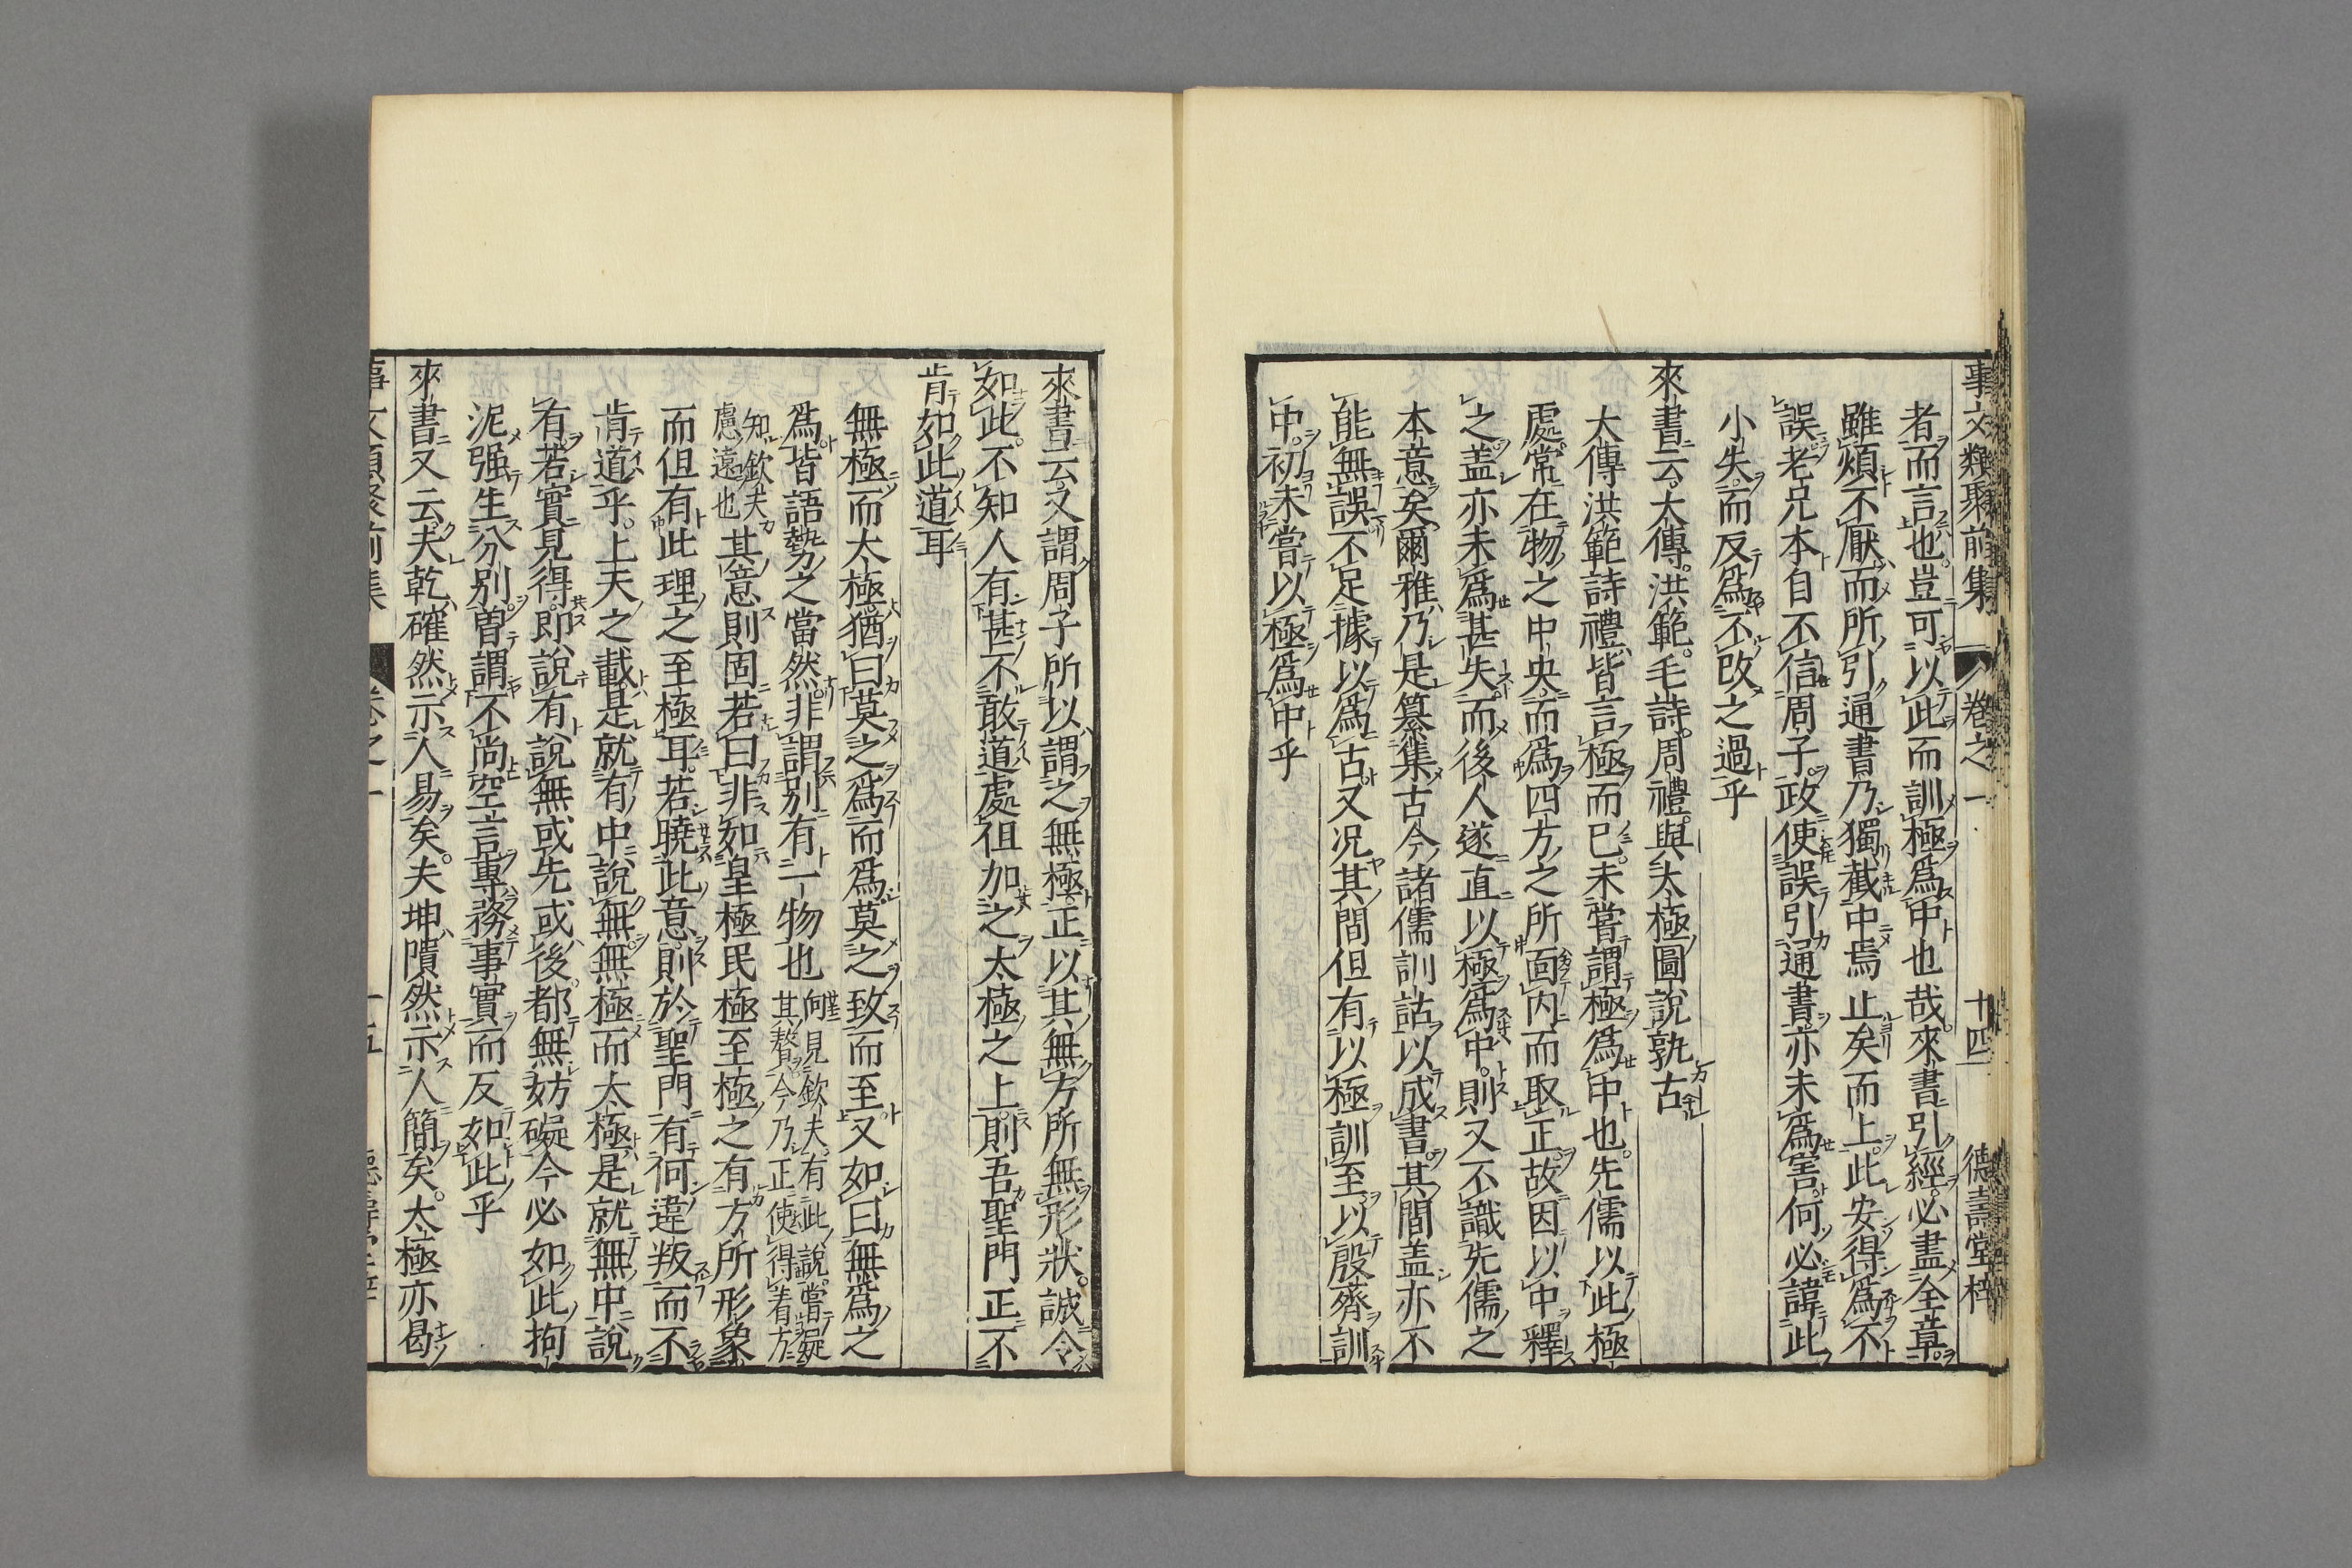 事文類聚前集 卷之一 十四 德壽堂梓
者而言也豈可以此而訓極爲中也哉來書引經必盡全章
雖煩不厭而所引通書乃獨截中焉止矣而上此安得爲不
誤老兄本自不信周子政使誤引通書亦未爲害何必諱此
小失而反爲不改之過乎
來書云大傳洪範毛詩周禮與太極圖說孰古
大傳洪範詩禮皆言極而已未嘗謂極爲中也先儒以此極
處常在物之中央而爲四方之所面内而取正故因以中釋
之盖亦未爲甚失而後人遂直以極爲中則又不識先儒之
本意矣爾雅乃是纂集古今諸儒訓詁以成書其間盖亦不
能無誤不足據以爲古又况其間但有以極訓至以殷齊訓
中初未嘗以極爲中乎
來書云又謂周子所以謂之無極正以其無方所無形狀誠令
如此不知人有甚不敢道處徂加之太極之上則吾聖門正不
肯如此道耳
無極而太極猶曰莫之爲而爲莫之致而至又如曰無爲之
爲皆語勢之當然非謂別有一物也 向見欽夫有此說嘗疑
其贅今乃正使得着方
知欽夫
慮遠也 其意則固若曰非如皇極民極至極之有方所形象
而但有此理之至極耳若曉此意則於聖門有何違叛而不
肯道乎上天之載是就有中說無無極而太極是就無中說
有若實見得即說有說無或先或後都無妨礙今必如此拘
泥强生分別曾謂不尚空言專務事實而反如此乎
來書又云夫乾確然示人易矣夫坤隤然示人簡矣太極亦曷